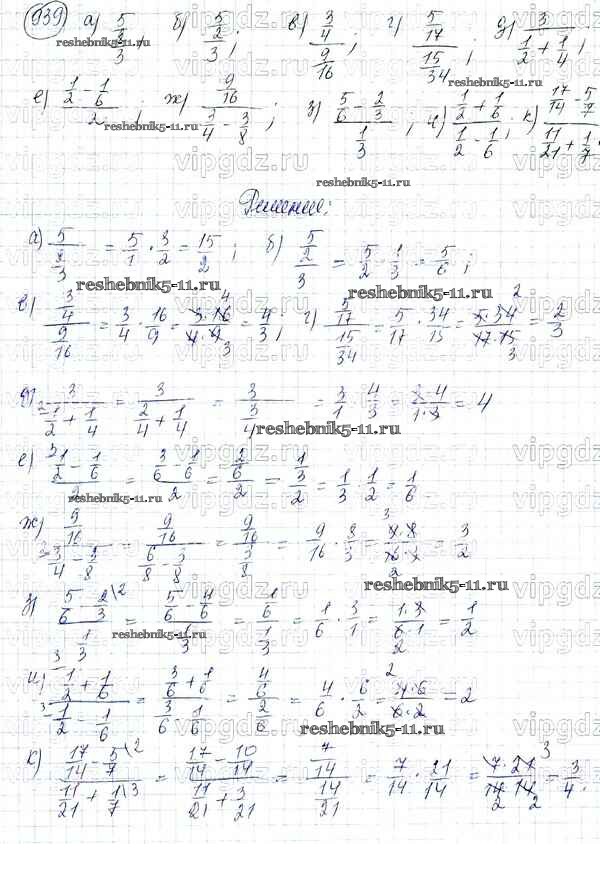 939 а) 5/(2/3); б) (5/2)/3; в) (3/4)/(9/16); г) (5/17)/(15/34); д) 3/(1/2 + 1/4);
е) (1/2 - 1/6)/2; ж) (9/16)/(3/4 - 3/8); з) (5/6 - 2/3)/(1/3); и) (1/2 + 1/6)/(1/2 - 1/6); к) (17/14 - 5/7)/(11/21 + 1/7)
Решение:
а) 5/(2/3) = 5/1 · 3/2 = 15/2; б) (5/2)/3 = 5/2 · 1/3 = 5/6;
в) (3/4)/(9/16) = 3/4 · 16/9 = 3·16/4·9 = 4/3; г) (5/17)/(15/34) = 5/17 · 34/15 = 5·34/17·15 = 2/3
д) 3/(1/2 + 1/4) = 3/(2/4 + 1/4) = 3/(3/4) = 3/1 · 4/3 = 3·4/1·3 = 4
е) (1/2 - 1/6)/2 = (3/6 - 1/6)/2 = (2/6)/2 = (1/3)/2 = 1/3 · 1/2 = 1/6
ж) (9/16)/(3/4 - 3/8) = (9/16)/(6/8 - 3/8) = (9/16)/(3/8) = 9/16 · 8/3 = 9·8/16·3 = 3/2
з) (5/6 - 2/3)/(1/3) = (5/6 - 4/6)/(1/3) = (1/6)/(1/3) = 1/6 · 3/1 = 1·3/6·1 = 1/2
и) (1/2 + 1/6)/(1/2 - 1/6) = (3/6 + 1/6)/(3/6 - 1/6) = (4/6)/(2/6) = 4/6 · 6/2 = 4·6/6·2 = 2
к) (17/14 - 5/7)/(11/21 + 1/7) = (17/14 - 10/14)/(11/21 + 3/21) = (7/14)/(14/21) = 7/14 · 21/14 = 7·21/14·14 = 3/4.
reshebnik5-11.ru
vipgdz.ru